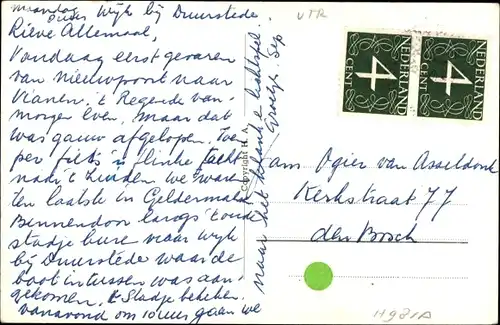 maandag
Wijk bij Duurstede.
Lieve Allemaal,
Vandaag eerst gevaren
van Nieuwpoort naar
Vianen, 't Regende van-
morgen even, maar dat
was gauw afgelopen. Toen
per fiets 'n flinke tocht
naar 't Zuiden, we waren
ten laatste in Geldermalsen
Binnendoor langs 't oude
stadje buren naar Wijk
bij Duurstede waar de
boot intussen was aan-
gekomen. 't Stadje bekeken.
vanavond om 10 uur gaan we
naar het klank en lichtspel
Groetjes,
VTR
NEDERLAND
4
CENT
NEDERLAND
4
CENT
Copyright H. A.
fam Ogier van Asseldonk
Kerkstraat 77
den Bosch
H981A